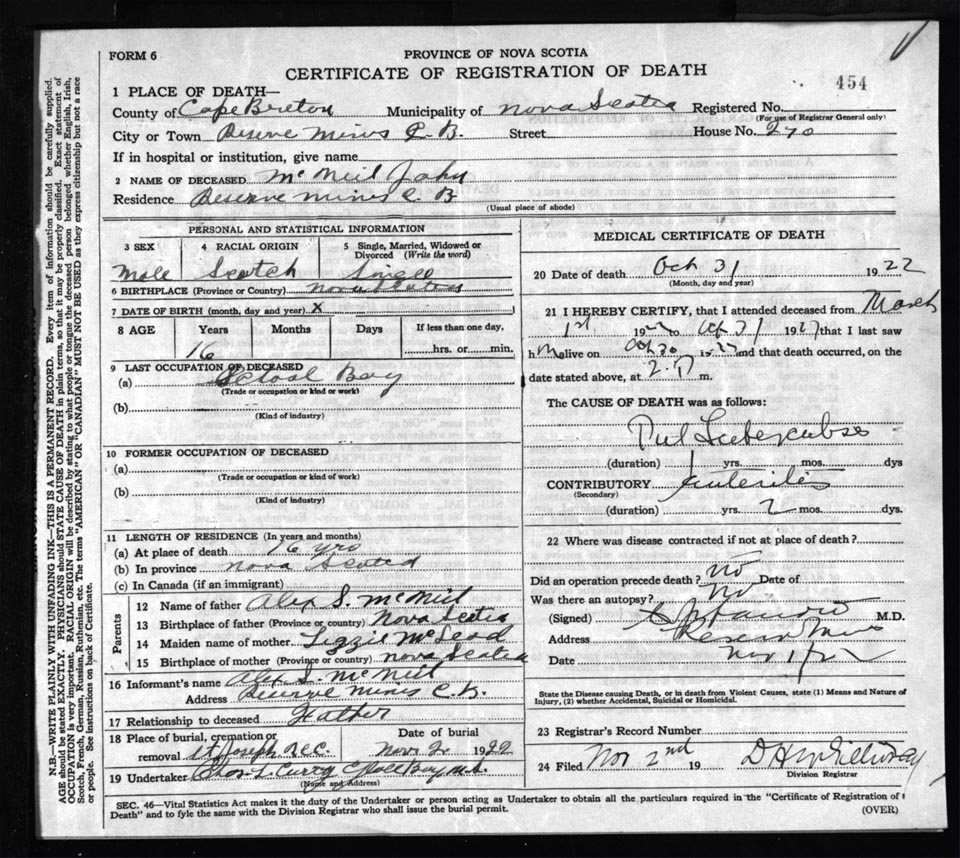 FORM 6
PROVINCE OF NOVA SCOTIA
CERTIFICATE OF REGISTRATION OF DEATH
454
1 PLACE OF DEATH—
County of Cape Breton Municipality of Nova Scotia Registered No.
(For use of Registrar General only)
City or Town Reserve Mines C. B. Street House No. 270
If in hospital or institution, give name
2 NAME OF DECEASED McNeil John
Residence Reserve Mines C. B
(Usual place of abode)
PERSONAL AND STATISTICAL INFORMATION
3 SEX 4 RACIAL ORIGIN 5 Single, Married, Widowed or Divorced (Write the word)
Male Scotch Single
6 BIRTHPLACE (Province or Country) Nova Scotia
7 DATE OF BIRTH (month, day and year) X
8 AGE Years Months Days If less than one day,
16 hrs. or min.
9 LAST OCCUPATION OF DECEASED
(a) School Boy
(Trade or occupation or kind or work)
(b)
(Kind of industry)
10 FORMER OCCUPATION OF DECEASED
(a)
(Trade or occupation or kind of work)
(b)
(Kind of industry)
11 LENGTH OF RESIDENCE (In years and months)
(a) At place of death 16 yrs
(b) In province Nova Scotia
(c) In Canada (if an immigrant)
Parents
12 Name of father Alex S. McNeil
13 Birthplace of father (Province or country) Nova Scotia
14 Maiden name of mother Lizzie McLeod
15 Birthplace of mother (Province or country) Nova Scotia
16 Informant's name Alex S. McNeil
Address Reserve Mines C. B.
17 Relationship to deceased Father
18 Place of burial, cremation or removal St Joseph Date of burial Nov. 2 1922
19 Undertaker Curry
(Name and Address)
MEDICAL CERTIFICATE OF DEATH
20 Date of death Oct 31 1922
(Month, day and year)
21 I HEREBY CERTIFY, that I attended deceased from March
1st 1922 to Oct 31 1922 that I last saw
h m alive on Oct 30 1922 and that death occurred, on the
date stated above, at m.
The CAUSE OF DEATH was as follows:
Pul Tuberculosis
(duration) 1 yrs. mos. dys
CONTRIBUTORY Enteritis
(Secondary)
(duration) yrs. 2 mos. dys.
22 Where was disease contracted if not at place of death?
Did an operation precede death? No Date of
Was there an autopsy? No
(Signed) M.D.
Address Reserve Mines
Date Nov 1/22
State the Disease causing Death, or in death from Violent Causes, state (1) Means and Nature of
Injury, (2) whether Accidental, Suicidal or Homicidal.
23 Registrar's Record Number
24 Filed Nov 2nd 19
Division Registrar
SEC. 46—Vital Statistics Act makes it the duty of the Undertaker or person acting as Undertaker to obtain all the particulars required in the "Certificate of Registration of
Death" and to fyle the same with the Division Registrar who shall issue the burial permit. (OVER)
N.B.—WRITE PLAINLY WITH UNFADING INK—THIS IS A PERMANENT RECORD. Every item of information should be carefully supplied.
AGE should be stated EXACTLY. PHYSICIANS should STATE CAUSE OF DEATH in plain terms, so that it may be properly classified. Exact statement of
OCCUPATION is very important. RACIAL ORIGIN will be described by stating to what people or tongue the deceased person belonged whether English, Irish,
Scotch, French, German, Russian, Ruthenian, etc. The terms "AMERICAN" OR "CANADIAN" MUST NOT BE USED as they express citizenship but not a race
or people. See instructions on back of Certificate.